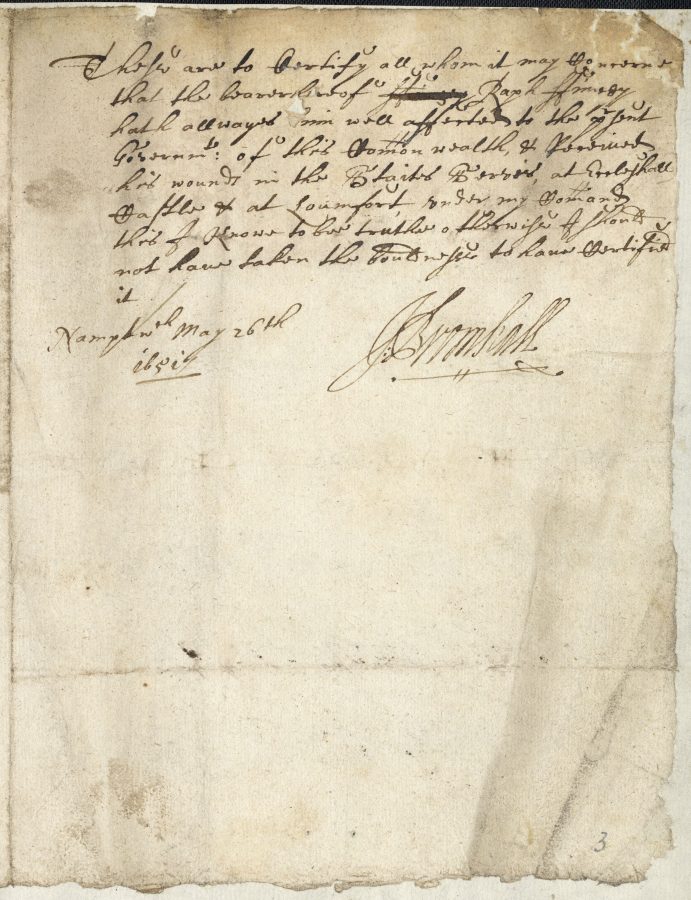 These are to Certify all whom it may Concerne
that the bearer hereof Raph ffinney
hath allwayes binn well affected to the p'sent
Governmt: of this Comon wealth, & Received
his wounds in the Staites Servis, at Eccleshall
Castle & at Loumfort, under my Comand,
this I Knowe to bee truthe otherwise I should
not have taken the bouldnesse to have Certified
it
Namptwch May 26th
1651
J: Bromhall
3